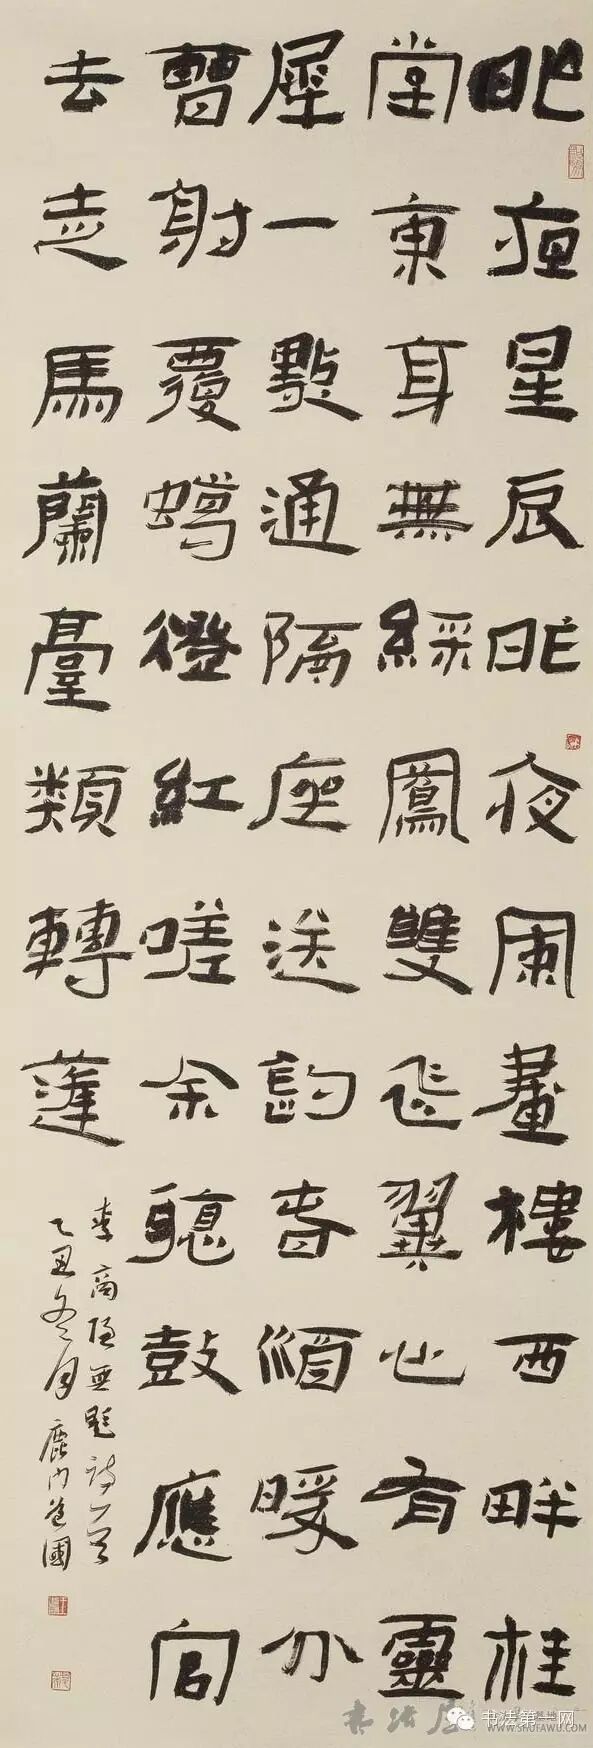 昨夜星辰昨夜風畫樓西畔桂
堂東身無綵鳳雙飛翼心有靈
犀一點通隔座送鈎春酒暖分
曹射覆蠟燈紅嗟余聽鼓應官
去走馬蘭臺類轉蓬
李商隱無題詩一首
乙丑冬月鹿門國
书法屋
书法第一网
WWW.SHUFAWU.COM